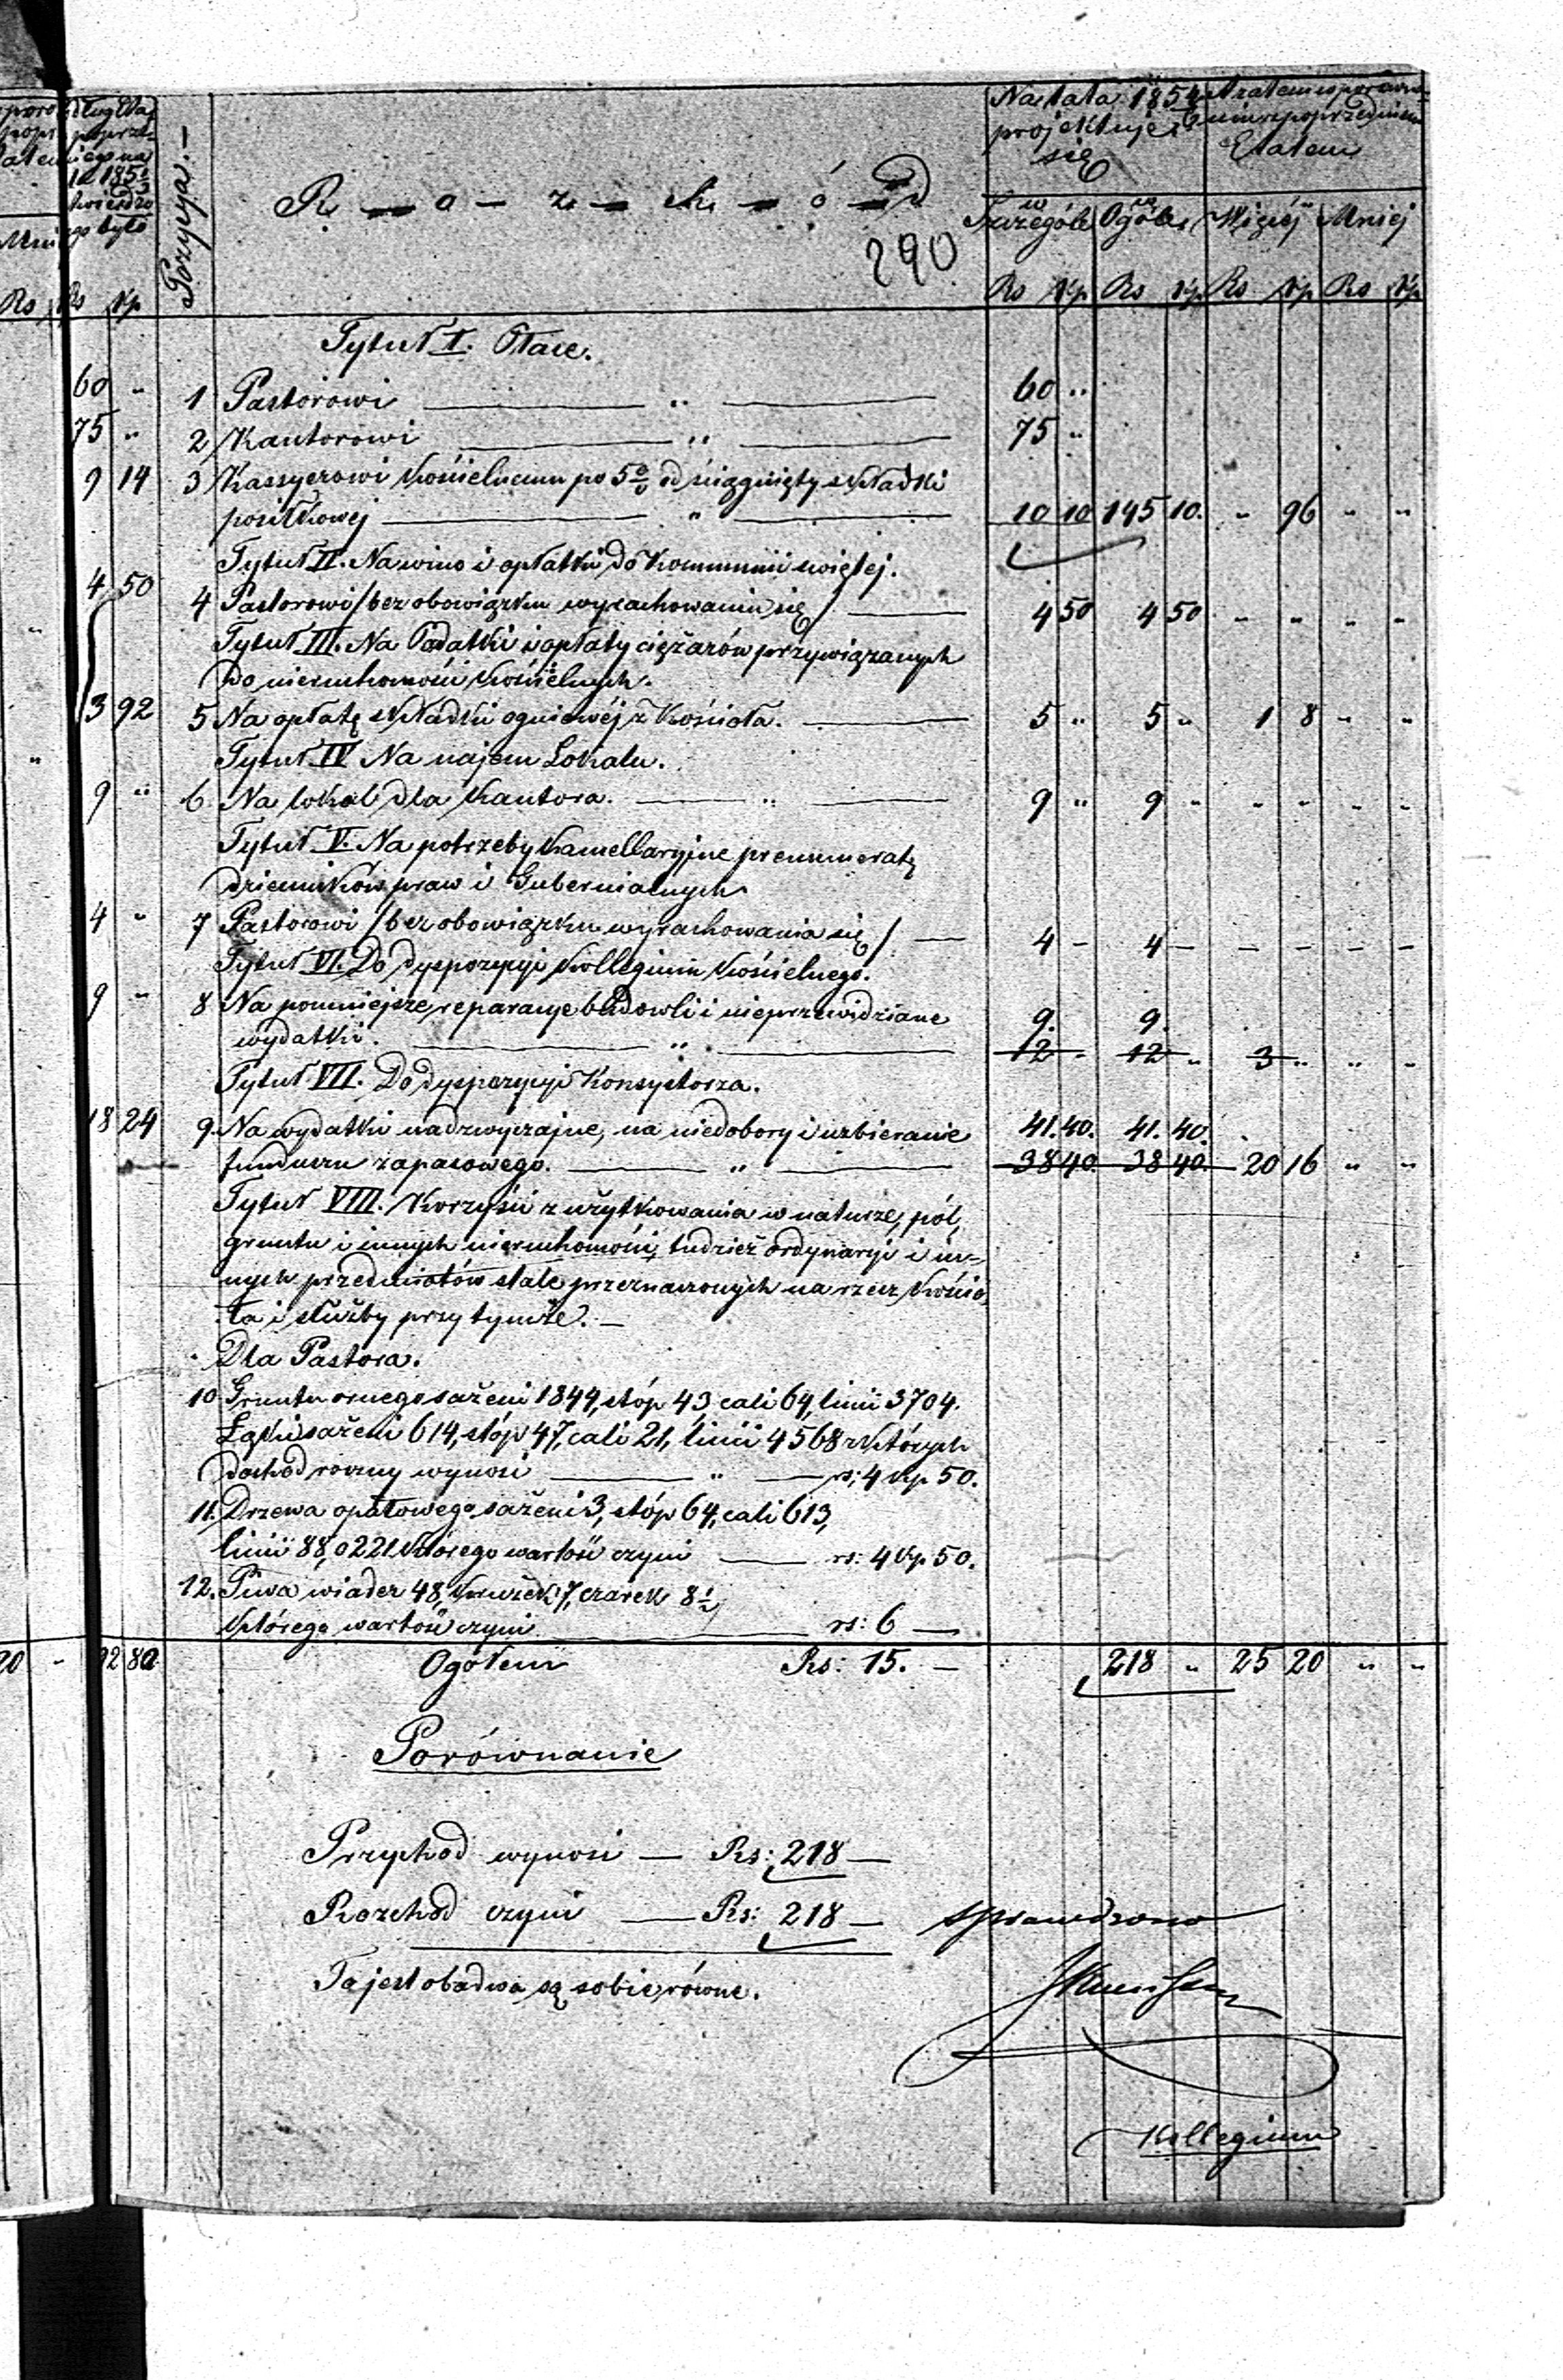 Na lata 185 a zatem w porówna-
projektuje niu z poprzednim
się Etatem
Pozycya. —
R — o — z — ch — ó — d
290
w Szczególe w Ogóle Więcéj Mniej
Rs Kp Rs Kp Rs Kp Rs Kp
Tytuł I. Płace.
60 " 1 Pastorowi — " — 60 "
75 " 2 Kantorowi — " — 75 "
9 14 3 Kassyerowi Kościelnemu po 5% od ściągnięty składki
posiłkowej — " — 10 10 145 10. " 96 " "
Tytuł II. Na wino i opłatki do Kommunii świętej.
4 50 4 Pastorowi / bez obowiązku wyrachowania się / — 4 50 4 50 " " " "
Tytuł III. Na Podatki i opłaty ciężarów przywiązanych
do nieruchomości Kościelnych.
3 92 5 Na opłatę składki ogniowéj z Kościoła. — 5 " 5 " 1 8 " "
Tytuł IV Na najem Lokalu.
9 " 6 Na lokal dla Kantora. — " — 9 " 9 " " " " "
Tytuł V. Na potrzeby Kancellaryjne prenumeratę
dzienników praw i Gubernialnych
4 " 7 Pastorowi / bez obowiązku wyrachowania się / — 4 — 4 — — — — —
Tytuł VI. Do dyspozycyi Kollegium Kościelnego.
9 " 8 Na pomniejsze reparacye budowli i nieprzewidziane 9. 9.
wydatki. — " — 12 " 12 " 3 " " "
Tytuł VII. Do dyspozycyi Konsystorza.
18 24 9. Na wydatki nadzwyczajne, na niedobory i uzbieranie 41. 40. 41. 40.
funduszu zapasowego. — " — 38 40. 38 40. 20 16 " "
Tytuł VIII. Korzyści z użytkowania w naturze, pól,
gruntu i innych nieruchomości, tudzież ordynaryi i in-
nych przedmiotów stale przeznaczonych na rzecz Kościo-
ła i służby przy tymże. —
Dla Pastora.
10 Gruntu ornego sażeni 1844, stóp 43, cali 64, linii 3704.
Łąki sażeni 614, stóp 47, cali 21, linii 4568 z których
dochód roczny wynosi — " — rs: 4 kp 50.
11. Drzewa opałowego sażeni 3, stóp 64, cali 613,
linii 88,0221 którego wartość czyni — rs: 4 kp 50.
12. Piwa wiader 48, krużek 7, czarek 8½
którego wartość czyni — rs: 6 —
Ogółem Rs: 15. — 218 " 25 20 " "
Porównanie
Przychod wynosi — Rs: 218 —
Rozchod czyni — Rs: 218 —
Sprawdzono
To jest obadwa są sobie równe.
Kollegium